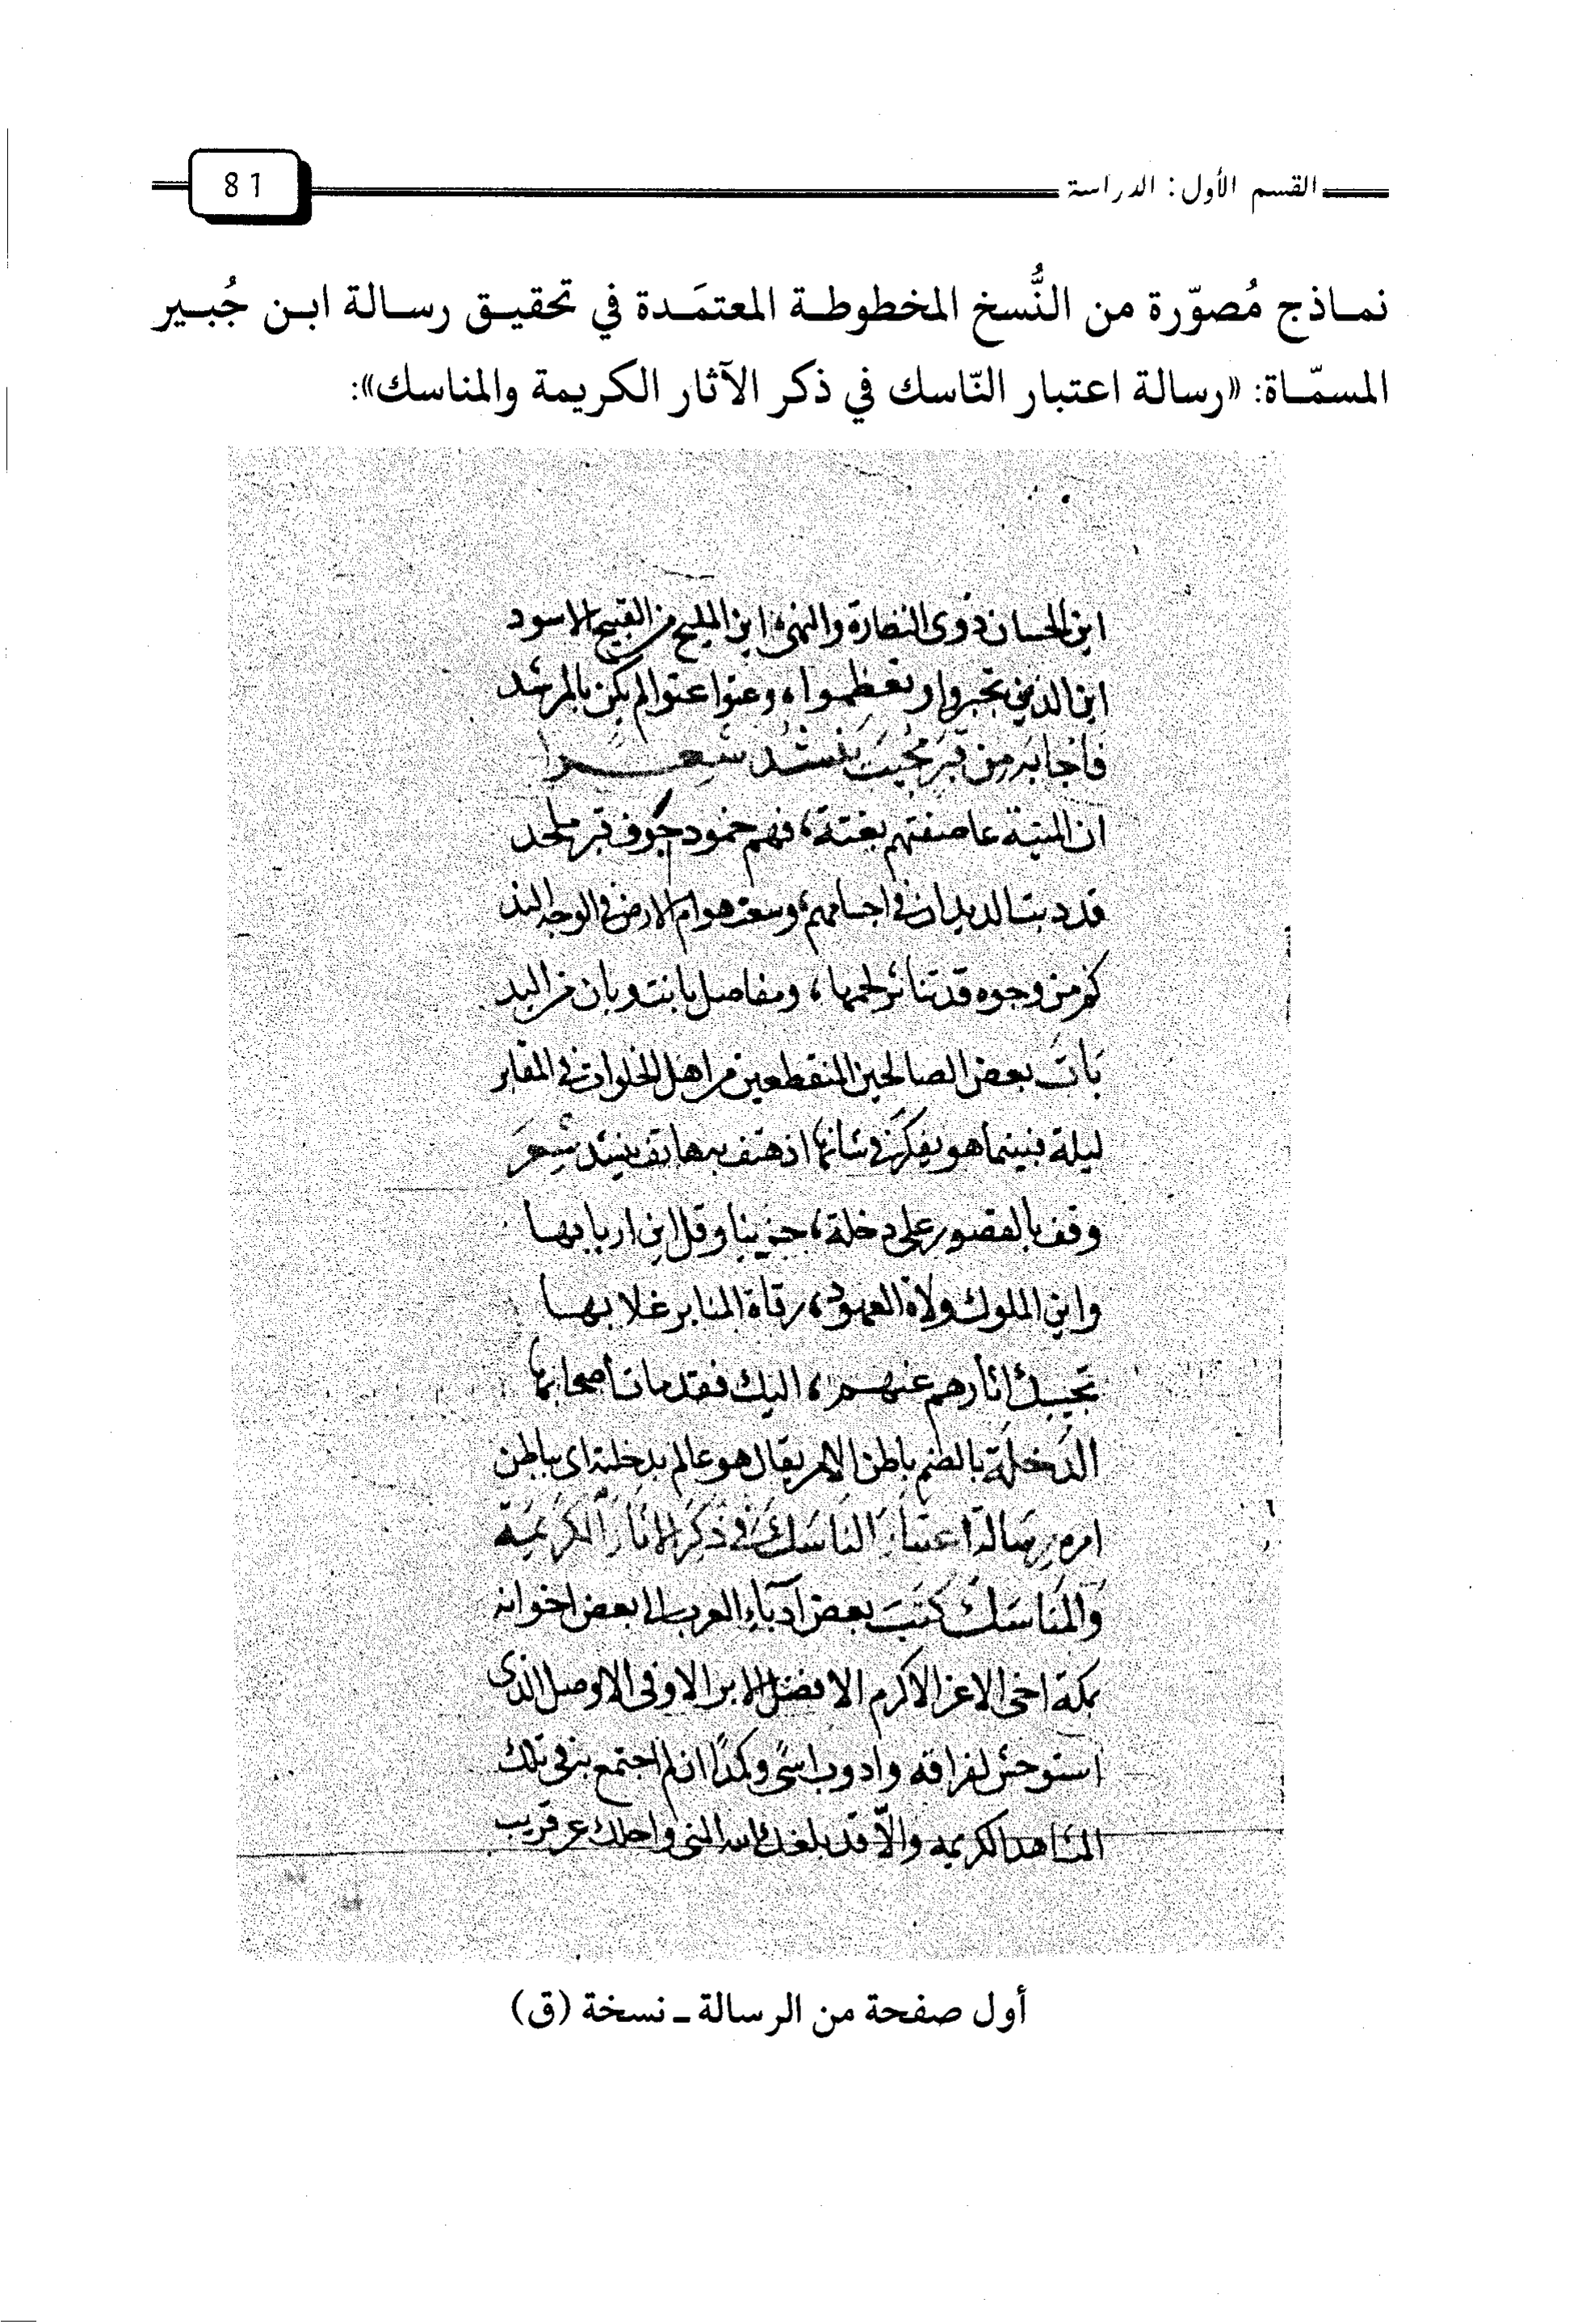 القسم الأول: الدراسة
81
نماذج مُصوّرة من النُّسخ المخطوطة المعتمَدة في تحقيق رسالة ابن جُبير
المسمّاة: «رسالة اعتبار النّاسك في ذكر الآثار الكريمة والمناسك»:
اين الحسان ذوى النضارة والنهى، اين المليح من القبيح الاسود
اين الذين تجبروا وتعظموا، وعتوا عتوا لم يكن بالمرشد
فاجابه من قبر مجيب ينشد شعرا
ان المنية عاصفتهم بغتة، فهم خمود جوف قبر ملحد
قد دبت الديدان في اجسامهم، وسعت هوام الارض في الوجه الند
كم من وجوه قد تناثر لحمها، ومفاصل بانت وبان من اليد
بَاتَ بعض الصالحين المنقطعين من اهل الخلوات في المقابر
ليلة فبينما هو يفكر في شانها اذ هتف به هاتف ينشد شعر
وقف بالقصور على دخلة، حزينا وقل اين اربابها
واين الملوك ولاة العهود، رقاة المنابر غلابها
تجيبك اثارهم عنهم، اليك فقد مات أصحابها
الدخلة بالضم باطن الامر يقال هو عالم بدخلته اى بباطن
امره رسالة اعتبار الناسك في ذكر الاثار الكريمة
والمناسك كتب بعض أدباء العرب الى بعض اخوانه
بمكة اخى الاعز الاكرم الافضل الابر الاوفى الاوصل الذى
استوحش لفراقه واذوب اسًى وكمدًا ان لم اجتمع به في تلك
المشاهد الكريمه والّا قد بلغك الله المنى واحلك عن قريب
أول صفحة من الرسالة ـ نسخة (ق)